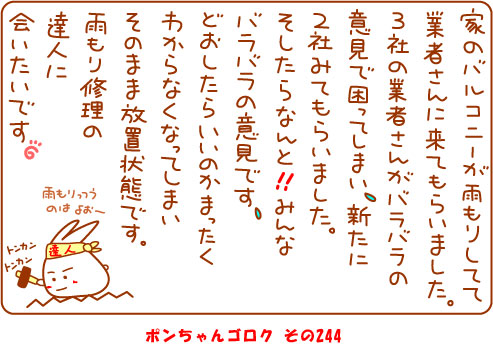 家のバルコニーが雨もりしてて
業者さんに来てもらいました。
3社の業者さんがバラバラの
意見で困ってしまい、新たに
2社みてもらいました。
そしたらなんと!!みんな
バラバラの意見です。
どおしたらいいのかまったく
わからなくなってしまい
そのまま放置状態です。
雨もり修理の
達人に
会いたいです
雨もりっつう
のは よおー
達人
トンカン
トンカン
ポンちゃんゴロク その244